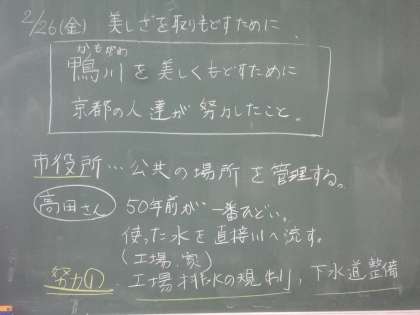 2/26(金) 美しさを取りもどすために
かもがわ
鴨川を美しくもどすために
京都の人達が努力したこと。
市役所…公共の場所を管理する。
高田さん 50年前が一番ひどい。
使った水を直接川へ流す。
(工場、家)
努力① 工場排水の規制、下水道整備